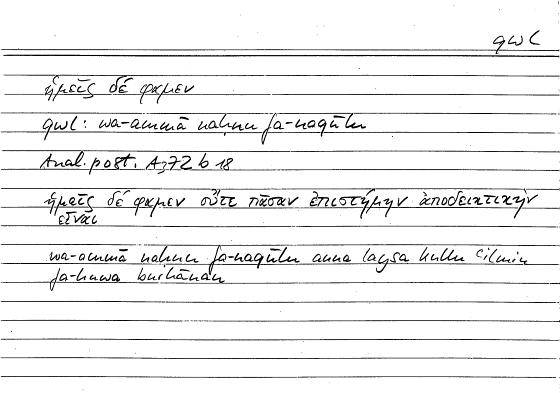 qwl
ἡμεῖς δέ φαμεν
qwl: wa-ammā naḥnu fa-naqūlu
Anal. post. A3, 72 b 18
ἡμεῖς δέ φαμεν οὔτε πᾶσαν ἐπιστήμην ἀποδεικτικὴν
εἶναι
wa-ammā naḥnu fa-naqūlu anna laysa kullu ʿilmin
fa-huwa burhānan